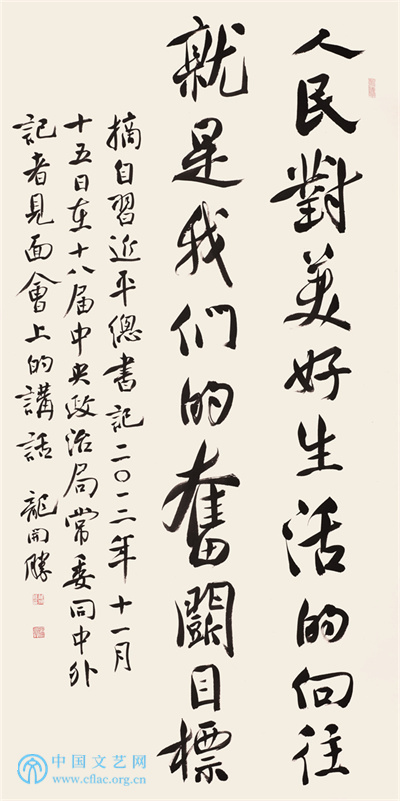 人民對美好生活的向往
就是我们的奮鬭目標
摘自習近平總書記二〇一二年十一月
十五日在十八届中央政治局常委同中外
記者見面會上的講話 龍開勝
中国文艺网
www.cflac.org.cn